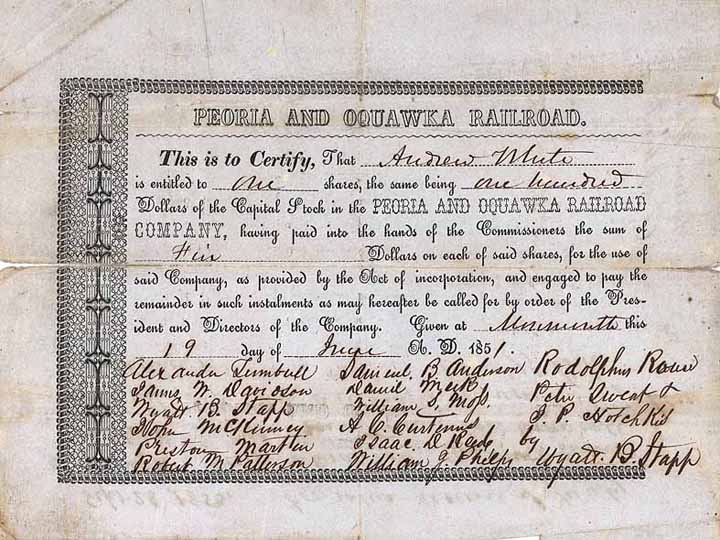 PEORIA AND OQUAWKA RAILROAD.
This is to Certify, That Andrew White
is entitled to one shares, the same being one hundred
Dollars of the Capital Stock in the PEORIA AND OQUAWKA RAILROAD
COMPANY, having paid into the hands of the Commissioners the sum of
Dollars on each of said shares, for the use of
said Company, as provided by the Act of incorporation, and engaged to pay the
remainder in such instalments as may hereafter be called for by order of the Pres-
ident and Directors of the Company. Given at Monmouth this
19 day of June A. D. 1851.
Alexander Turnbull Samuel B Anderson Rodolphus Rouse
James W. Davidson Daniel Meek Peter
Wyatt B. Stapp William S. Moss J. P. Hotchkis
John McKinney A C Curtenius
Preston Martin Isaac D by
Robert M Patterson William J Phelps Wyatt. B. Stapp